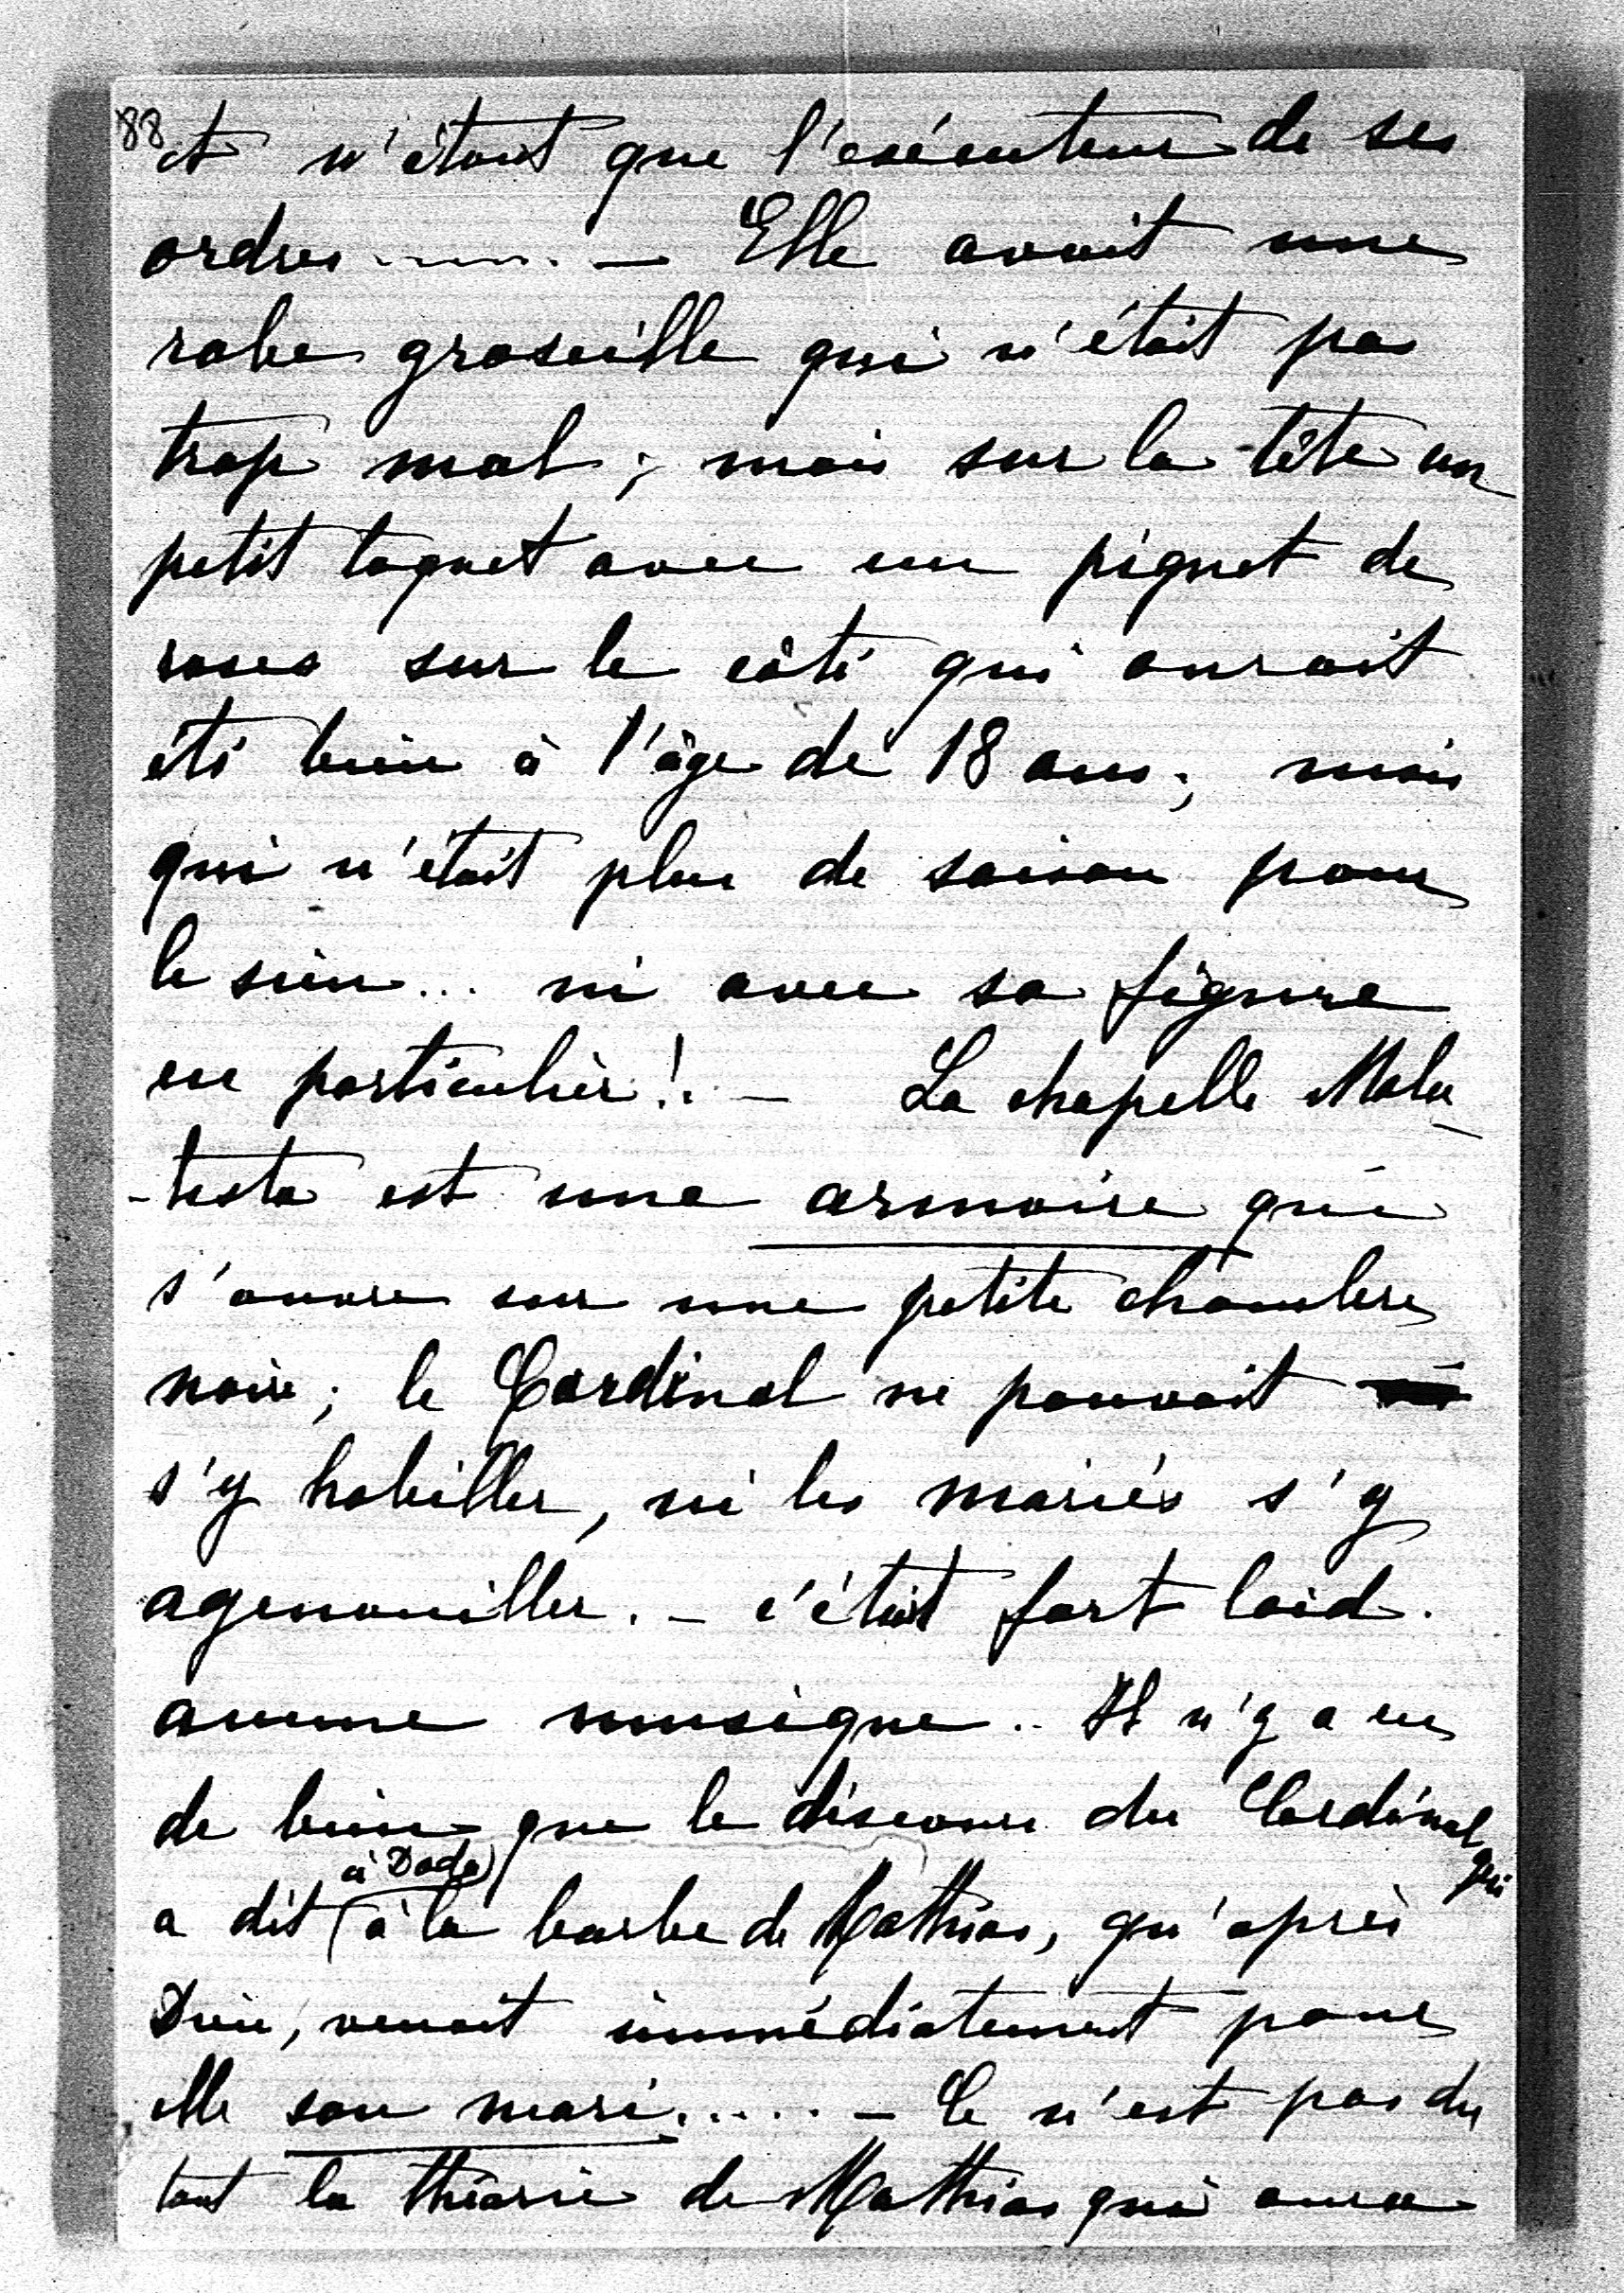 88
et n'étant que l'exécuteur de ses
ordres ......... — Elle avait une
robe groseille qui n'était pas
trop mal ; mais sur la tête un
petit toquet avec un piquet de
roses sur le côté qui aurait
été bien à l'âge de 18 ans ; mais
qui n'était plus de saison pour
le sien ... ni avec sa figure
en particulier !. — La chapelle Mala
-testa est une armoire qui
s'ouvre sur une petite chambre
noire ; le Cardinal ne pouvait ni
s'y habiller, ni les mariés s'y
agenouiller. — c'était fort laid.
aucune musique .. Il n'y a eu
de bien que le discours du Cardinal qui
a dit à Dada (à la barbe de Mathias, qu'après
Dieu, venait immédiatement pour
elle son mari..... — Ce n'est pas du
tout la théorie de Mathias qui aura